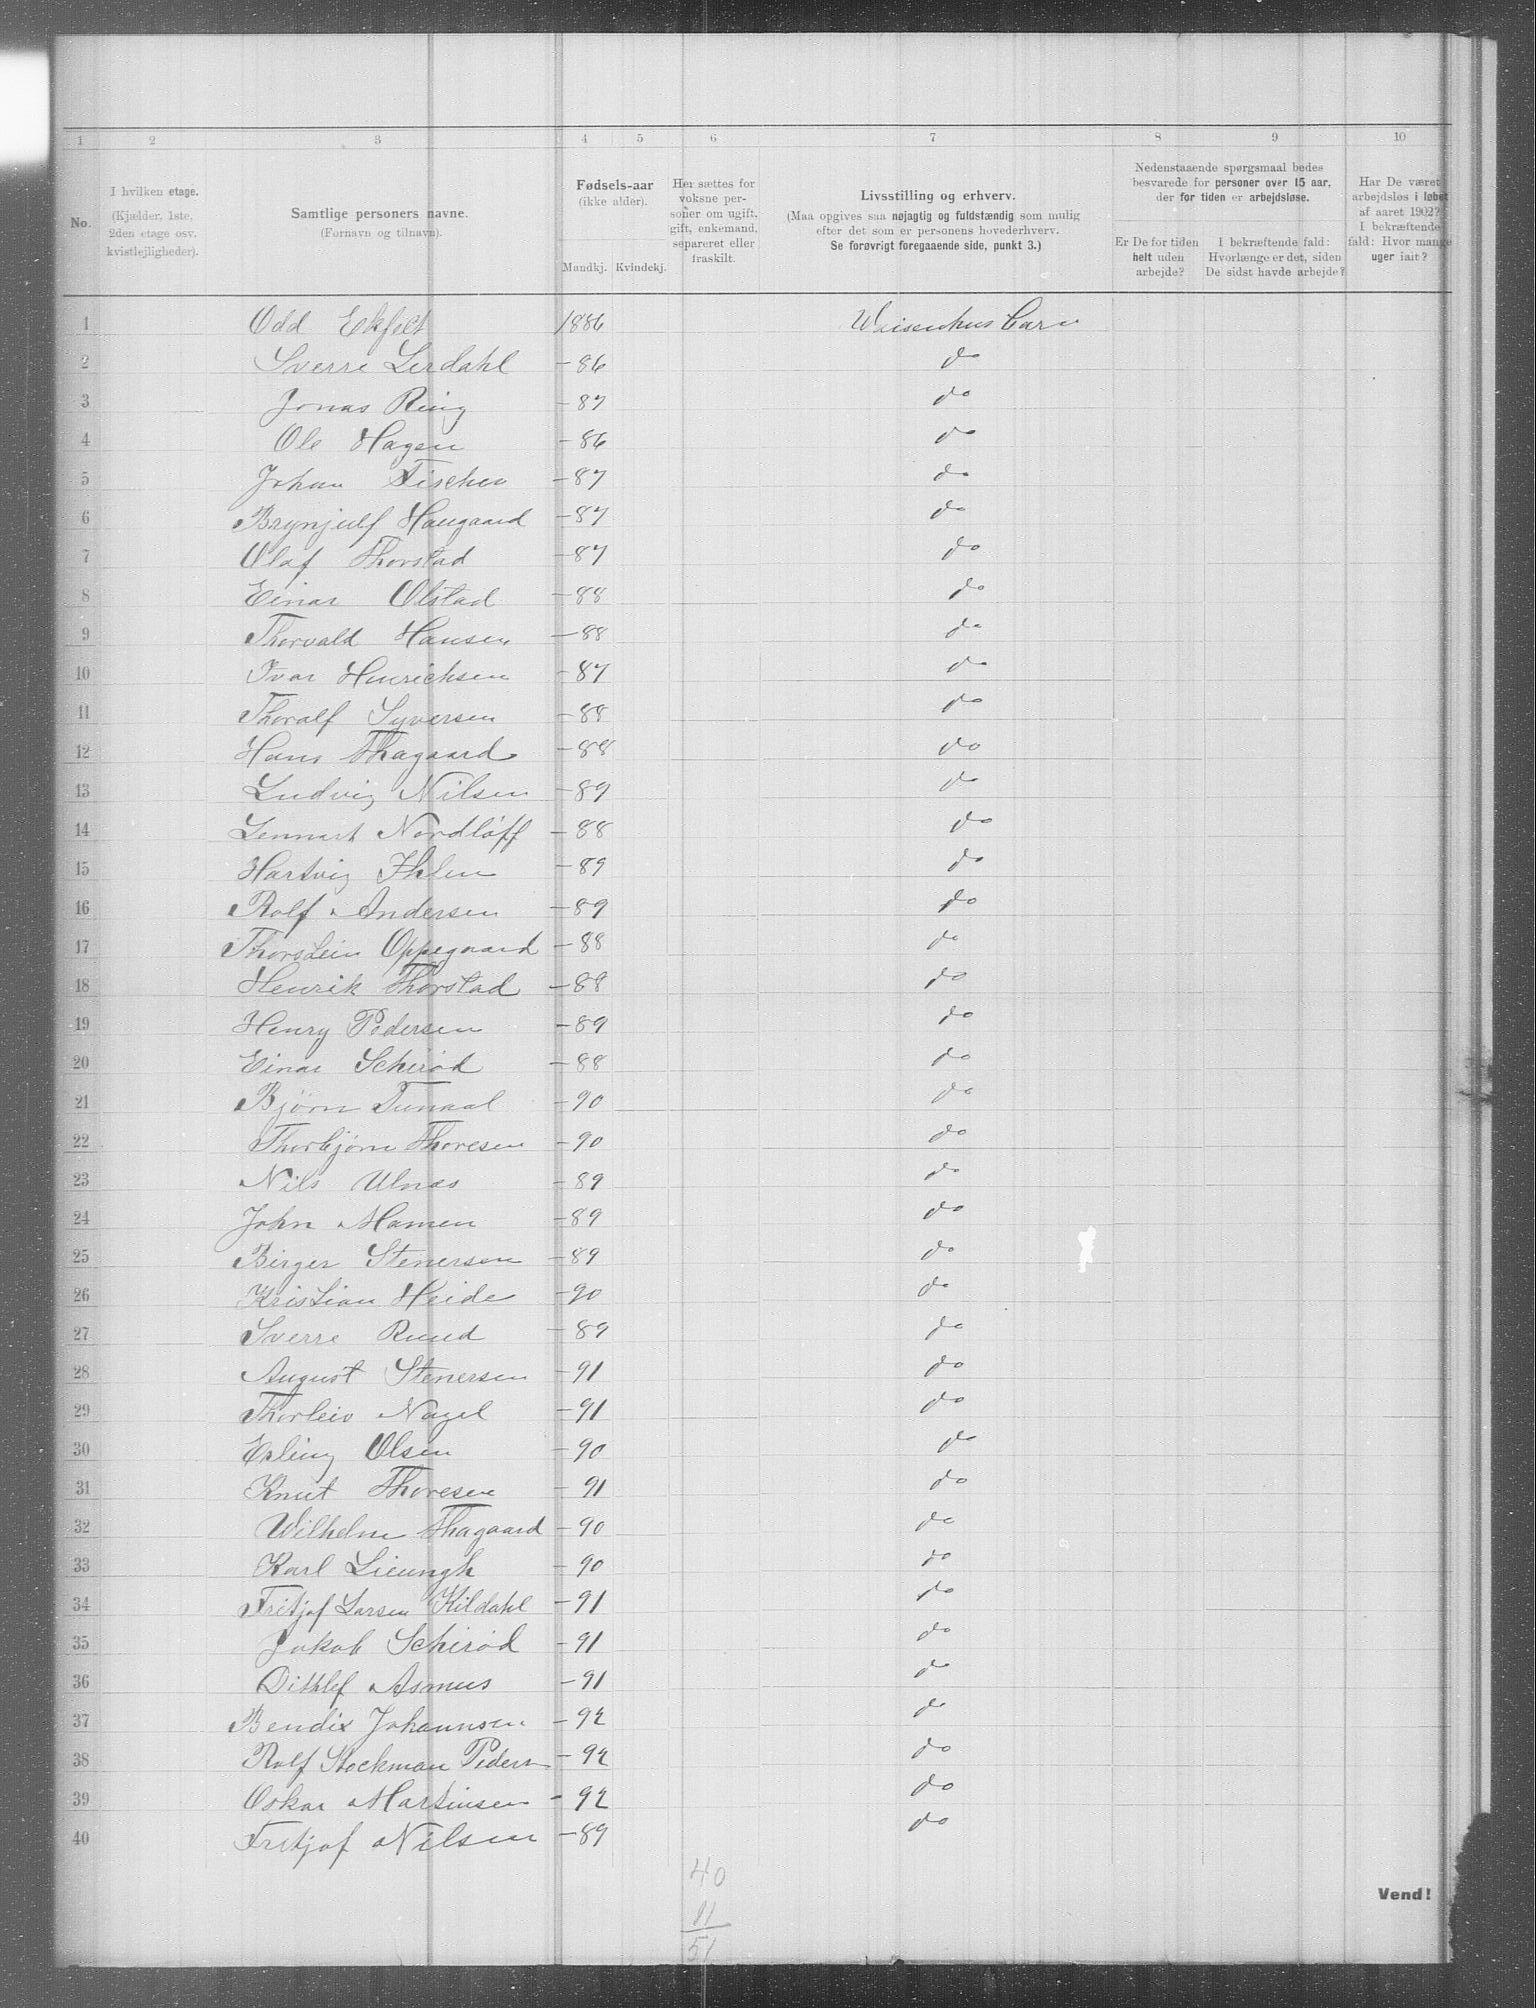 1 2 3 4 5 6 7 8 9 10
No.
I hvilken etage.
(Kjælder, 1ste,
2den etage osv.
kvistlejligheder).
Samtlige personers navne.
(Fornavn og tilnavn).
Fødsels-aar
(ikke alder).
Mandkj. Kvindekj.
Her sættes for
voksne per-
soner om ugift,
gift, enkemand,
separeret eller
fraskilt.
Livsstilling og erhverv.
(Maa opgives saa nøjagtig og fuldstændig som mulig
efter det som er personens hovederhverv.
Se forøvrigt foregaaende side, punkt 3.)
Nedenstaaende spørgsmaal bedes
besvarede for personer over 15 aar,
der for tiden er arbejdsløse.
Er De for tiden
helt uden
arbejde?
I bekræftende fald:
Hvorlænge er det, siden
De sidst havde arbejde?
Har De været
arbejdsløs i løbet
af aaret 1902?
I bekræftende
fald: Hvor mange
uger ialt?
1 Odd Ekfelt 1886 Waisenhus Barn
2 Sverre Lerdahl - 86 do
3 Jonas Ring - 87 do
4 Ole Hagen - 86 do
5 Johan Fischer - 87 do
6 Brynjulf Haugaard - 87 do
7 Olaf Thorstad - 87 do
8 Einar Olstad - 88 do
9 Thorvald Hansen - 88 do
10 Ivar Henrichsen - 87 do
11 Thoralf Syversen - 88 do
12 Hans Thagaard - 88 do
13 Ludvig Nilsen - 89 do
14 Lennart Nordløff - 88 do
15 Hartvig Ihlen - 89 do
16 Rolf Andersen - 89 do
17 Thorstein Oppegaard - 88 do
18 Henrik Thorstad - 89 do
19 Henry Pedersen - 89 do
20 Einar Schirød - 88 do
21 Bjørn Tunaal - 90 do
22 Thorbjørn Thoresen - 90 do
23 Nils Ulnæs - 89 do
24 John Mamen - 89 do
25 Birger Stenersen - 89 do
26 Kristian Heide - 90 do
27 Sverre Ruud - 89 do
28 August Stenersen - 91 do
29 Thorleiv Nagel - 91 do
30 Erling Olsen - 90 do
31 Knut Thoresen - 91 do
32 Wilhelm Thagaard - 90 do
33 Karl Lieungh - 90 do
34 Fritjof Larsen Kildahl - 91 do
35 Jakob Schirød - 91 do
36 Ditlef Asmus - 91 do
37 Bendix Johannsen - 92 do
38 Rolf Stockman Peders - 92 do
39 Oskar Martinsen - 92 do
40 Fritjof Nilsen - 89 do
40
11
51
Vend!